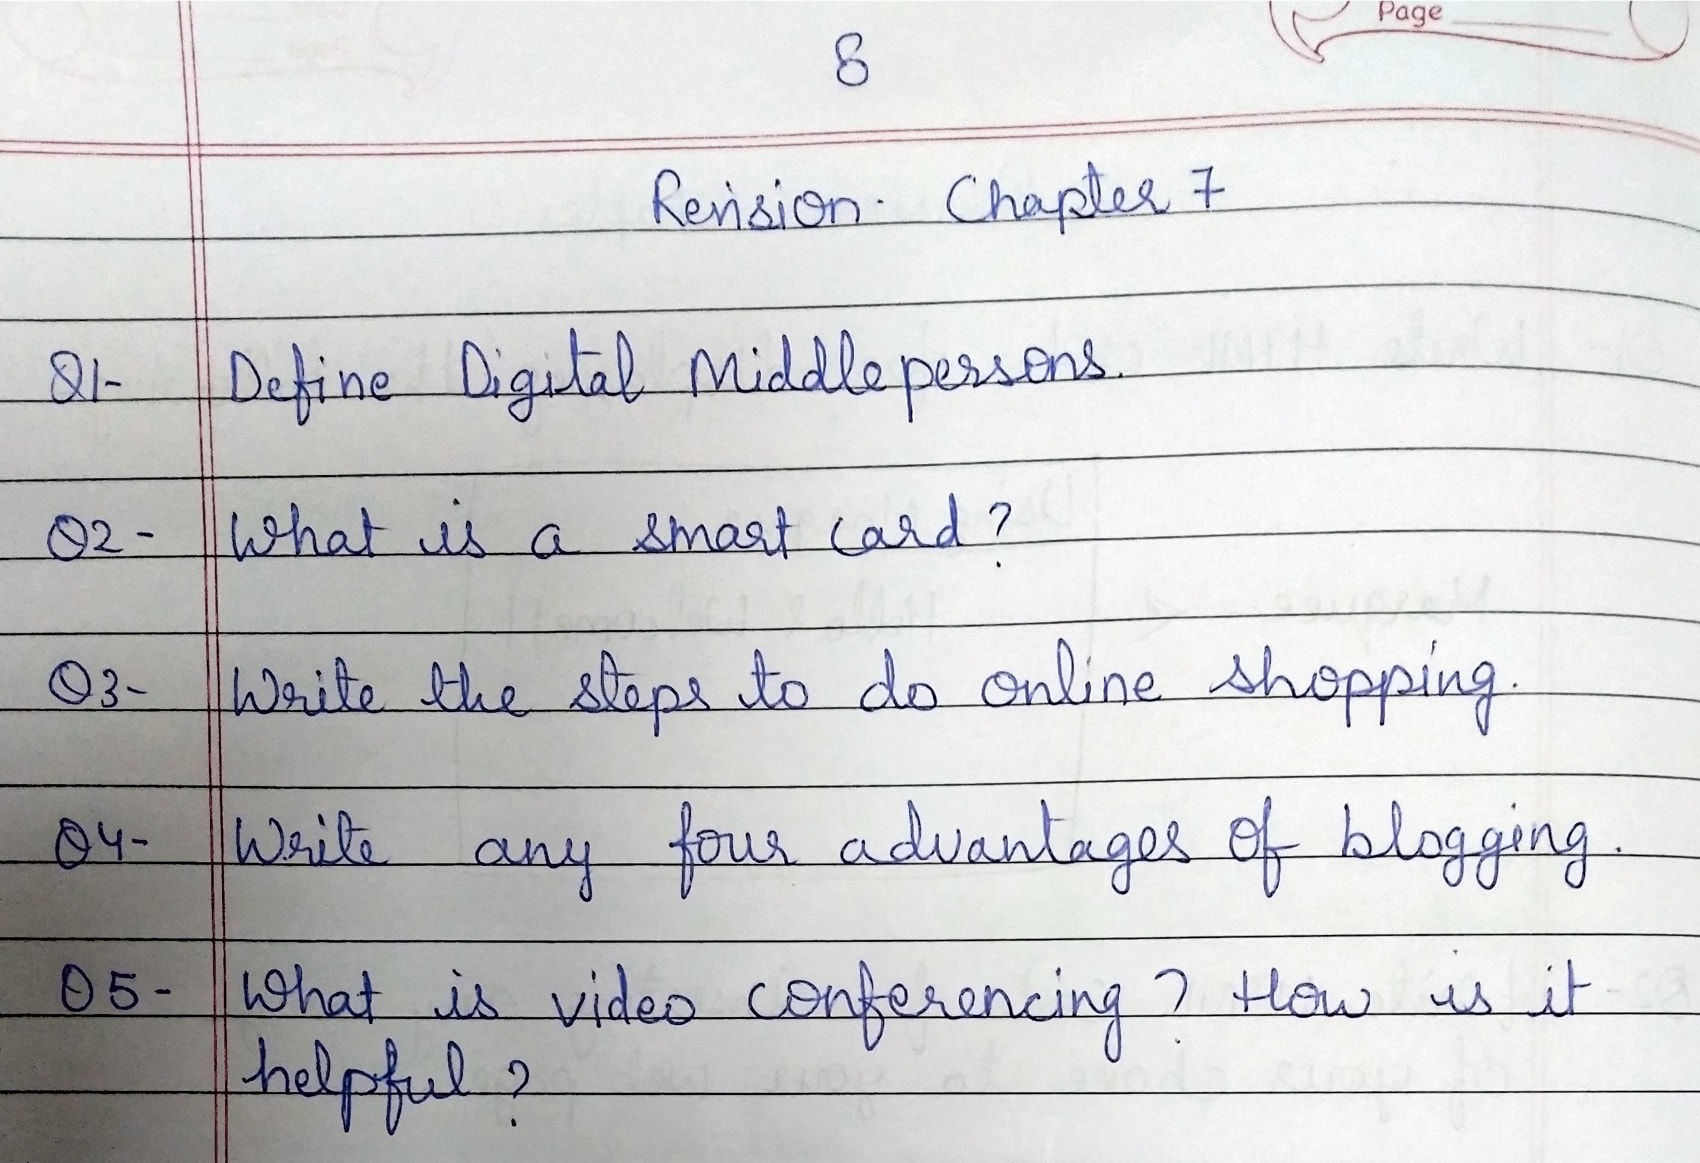 Page
8
Revision. Chapter 7
Q1- Define Digital Middlepersons.
Q2- What is a smart card?
Q3- Write the steps to do online shopping.
Q4- Write any four advantages of blogging.
Q5- What is video conferencing? How is it
helpful?